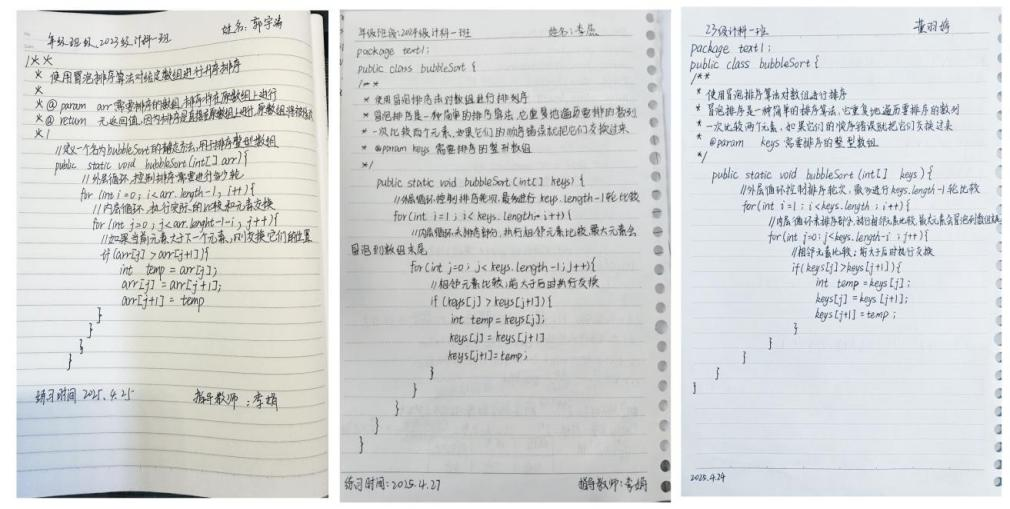 年级班级:2023级计科一班 姓名:郭宇涵
/**
* 使用冒泡排序算法对给定数组进行升序排序
* @ param arr 需要排序的数组,排序将在原数组上进行
* @ return 无返回值,因为排序是直接在原数组上进行,原数组将被修改
*/
//定义一个名为bubbleSort的静态方法,用于排序整型数组
public static void bubbleSort(int[] arr){
//外层循环,控制排序需要进行多少轮
for(int i=0; i<arr.length-1, i++){
//内层循环,执行实际的比较和元素交换
for(int j=0; j<arr.lenght-1-i; j++){
//如果当前元素大于下一个元素,则交换它们的位置
if(arr[j]>arr[j+1]){
int temp = arr[j];
arr[j] = arr[j+1];
arr[j+1] = temp
}
}
}
}
练习时间 2025.4.25 指导教师:李娟
年级班级:2024级计科一班 姓名:李
package text1;
public class bubbleSort {
/**
* 使用冒泡排序法对数组进行排列序
* 冒泡排序是一种简单的排序算法,它重复地遍历要排的数列
* 一次比较两个元素,如果它们的顺序错误就把它们交换过来
* @param keys 需要排序的整型数组
*/
public static void bubbleSort(int[] keys) {
//外层循环控制排序轮次,最多进行keys.length-1轮比较
for(int i=1; i<keys.length; i++){
//内层循环未排序部分,执行相邻元素比较,最大元素会
冒泡到数组末尾
for(int j=0; j<keys.length-1;j++){
//相邻元素比较;前大于后时执行交换
if (keys[j]>keys[j+1]){
int temp=keys[j];
keys[j]=keys[j+1]
keys[j+1]=temp;
}
}
}
}
}
练习时间:2025.4.27 指导教师:李娟
23级计科一班 黄羽婷
package text1;
public class bubbleSort {
/**
* 使用冒泡排序算法对数组进行排序
* 冒泡排序是一种简单的排序算法,它重复地遍历要排序的数列
* 一次比较两个元素,如果它们的顺序错误就把它们交换过来
* @param keys 需要排序的整型数组
*/
public static void bubbleSort (int[] keys){
//外层循环控制排序轮次,最多进行keys.length-1轮比较
for(int i=1; i<keys.length; i++){
//内层循环未排序部分,执行相邻元素比较,最大元素会冒泡到数组末
for(int j=0; j<keys.length-i; j++){
//相邻元素比较;前大于后时执行交换
if(keys[j]>keys[j+1]){
int temp=keys[j];
keys[j]=keys[j+1];
keys[j+1]=temp;
}
}
}
}
2025.4.24